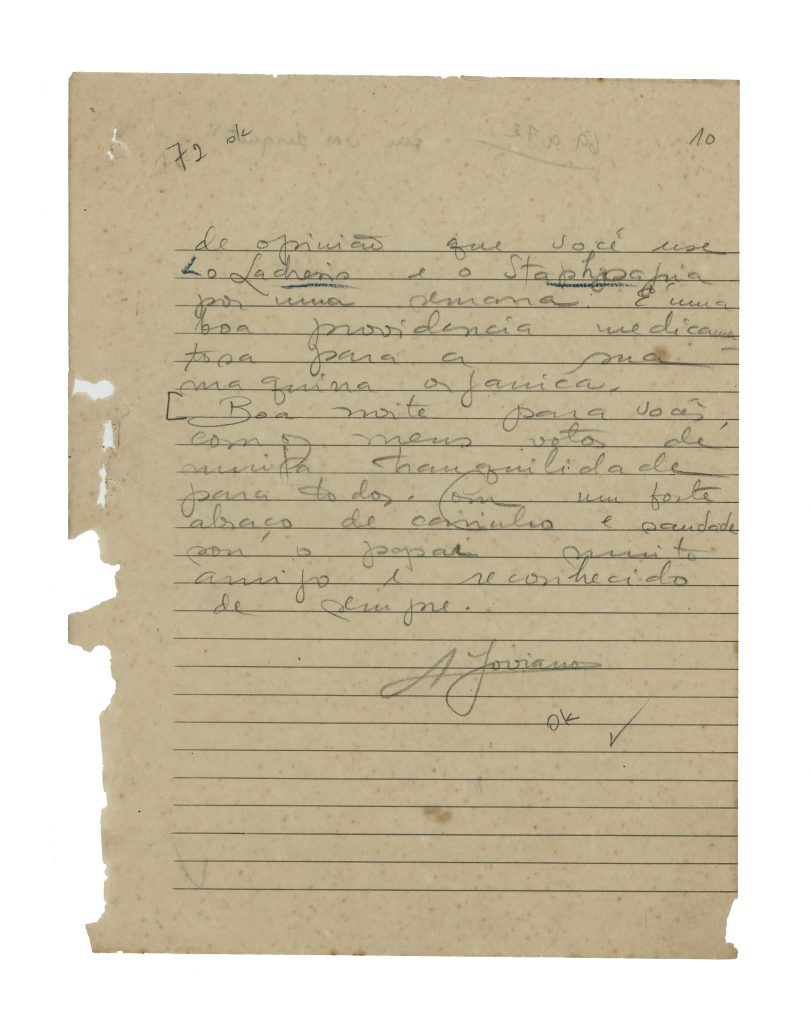 72 ok 10
de opinião que você use
o Lachesis e o Staphysagria
por uma semana. É uma
boa providencia medicamen
tosa para a sua
maquina organica.
[ Boa noite para vocês,
com os meus votos de
muita tranquilidade
para todos. Com um forte
abraço de carinho e saudade
sou o papai muito
amigo e reconhecido
de sempre.
A Joviano
ok ✓